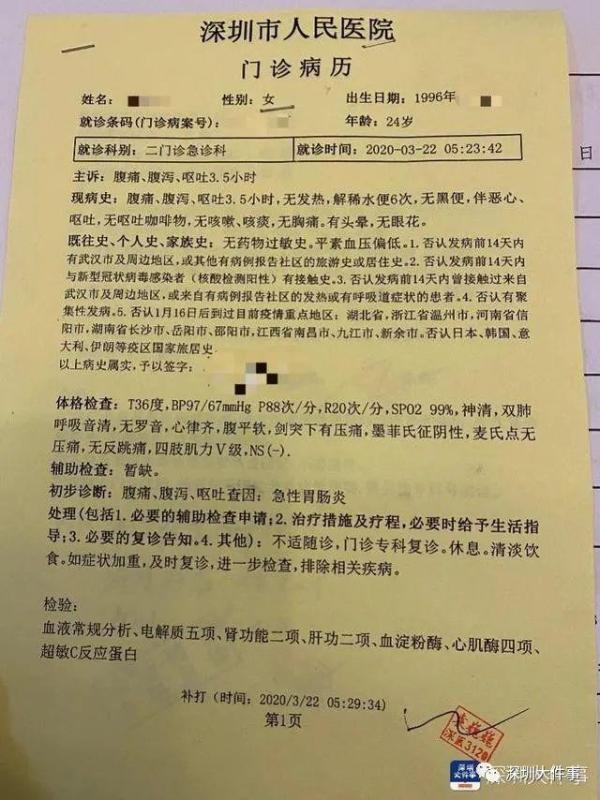 深圳市人民医院
门诊病历
姓名: 性别: 女 出生日期: 1996年
就诊条码(门诊病案号): 年龄: 24岁
就诊科别: 二门诊急诊科 就诊时间: 2020-03-22 05:23:42
主诉: 腹痛、腹泻、呕吐3.5小时
现病史: 腹痛、腹泻、呕吐3.5小时,无发热,解稀水便6次,无黑便,伴恶心、
呕吐,无呕吐咖啡物,无咳嗽、咳痰,无胸痛。有头晕,无眼花。
既往史、个人史、家族史: 无药物过敏史。平素血压偏低。1.否认发病前14天内
有武汉市及周边地区,或其他有病例报告社区的旅游史或居住史。2.否认发病前14天内
与新型冠状病毒感染者(核酸检测阳性)有接触史。3.否认发病前14天内曾接触过来自
武汉市及周边地区,或来自有病例报告社区的发热或有呼吸道症状的患者。4.否认有聚
集性发病。5.否认1月16日后到过目前疫情重点地区: 湖北省,浙江省温州市,河南省信
阳市,湖南省长沙市、岳阳市、邵阳市,江西省南昌市、九江市、新余市。否认日本、韩国、意
大利、伊朗等疫区国家旅居史
以上病史属实,予以签字:
体格检查: T36度,BP97/67mmHg P88次/分,R20次/分,SPO2 99%,神清,双肺
呼吸音清,无罗音,心律齐,腹平软,剑突下有压痛,墨菲氏征阴性,麦氏点无
压痛,无反跳痛,四肢肌力V级,NS(-).
辅助检查: 暂缺。
初步诊断: 腹痛、腹泻、呕吐查因: 急性胃肠炎
处理(包括1.必要的辅助检查申请;2.治疗措施及疗程,必要时给予生活指
导;3.必要的复诊告知。4.其他): 不适随诊,门诊专科复诊。休息。清淡饮
食。如症状加重,及时复诊,进一步检查,排除相关疾病。
检验:
血液常规分析、电解质五项、肾功能二项、肝功二项、血淀粉酶、心肌酶四项、
超敏C反应蛋白
补打 (时间: 2020/3/22 05:29:34)
第1页
深圳
大件事
深圳大件事